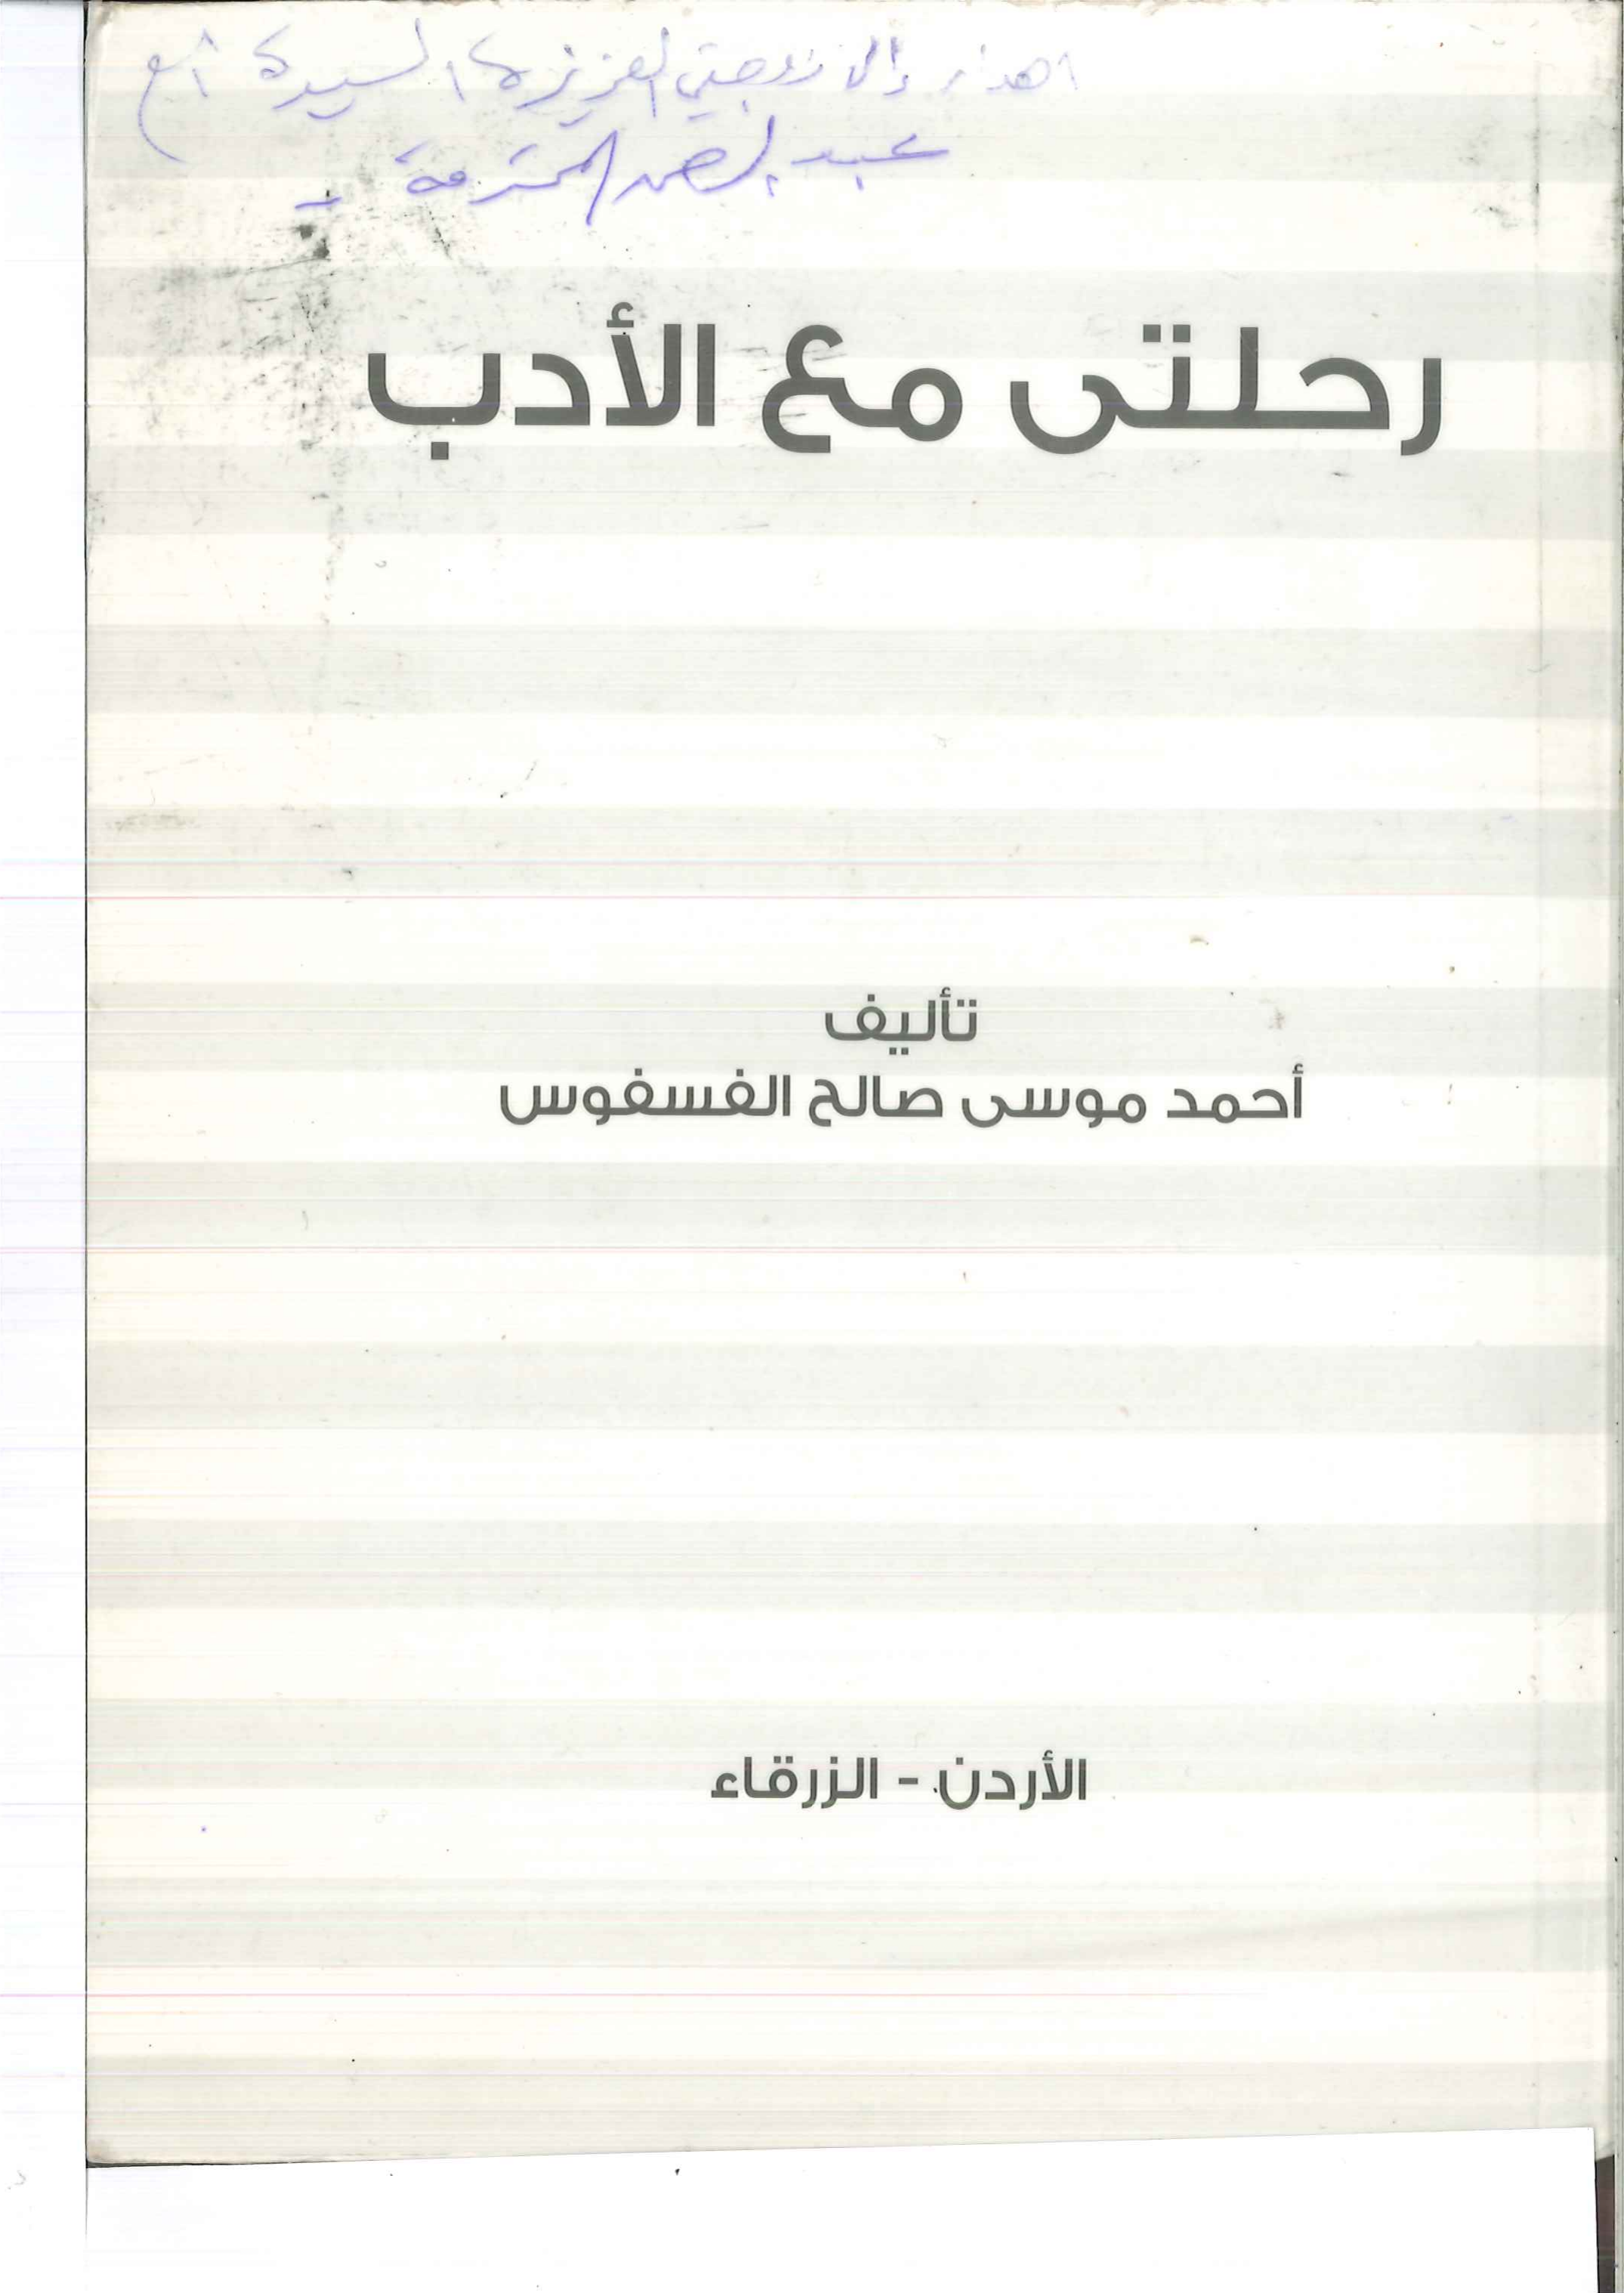 اهداء إلى زوجتي العزيزة السيدة أم
عبد الرحمن المحترمة -
رحلتى مع الأدب
تأليف
أحمد موسى صالح الفسفوس
الأردن - الزرقاء